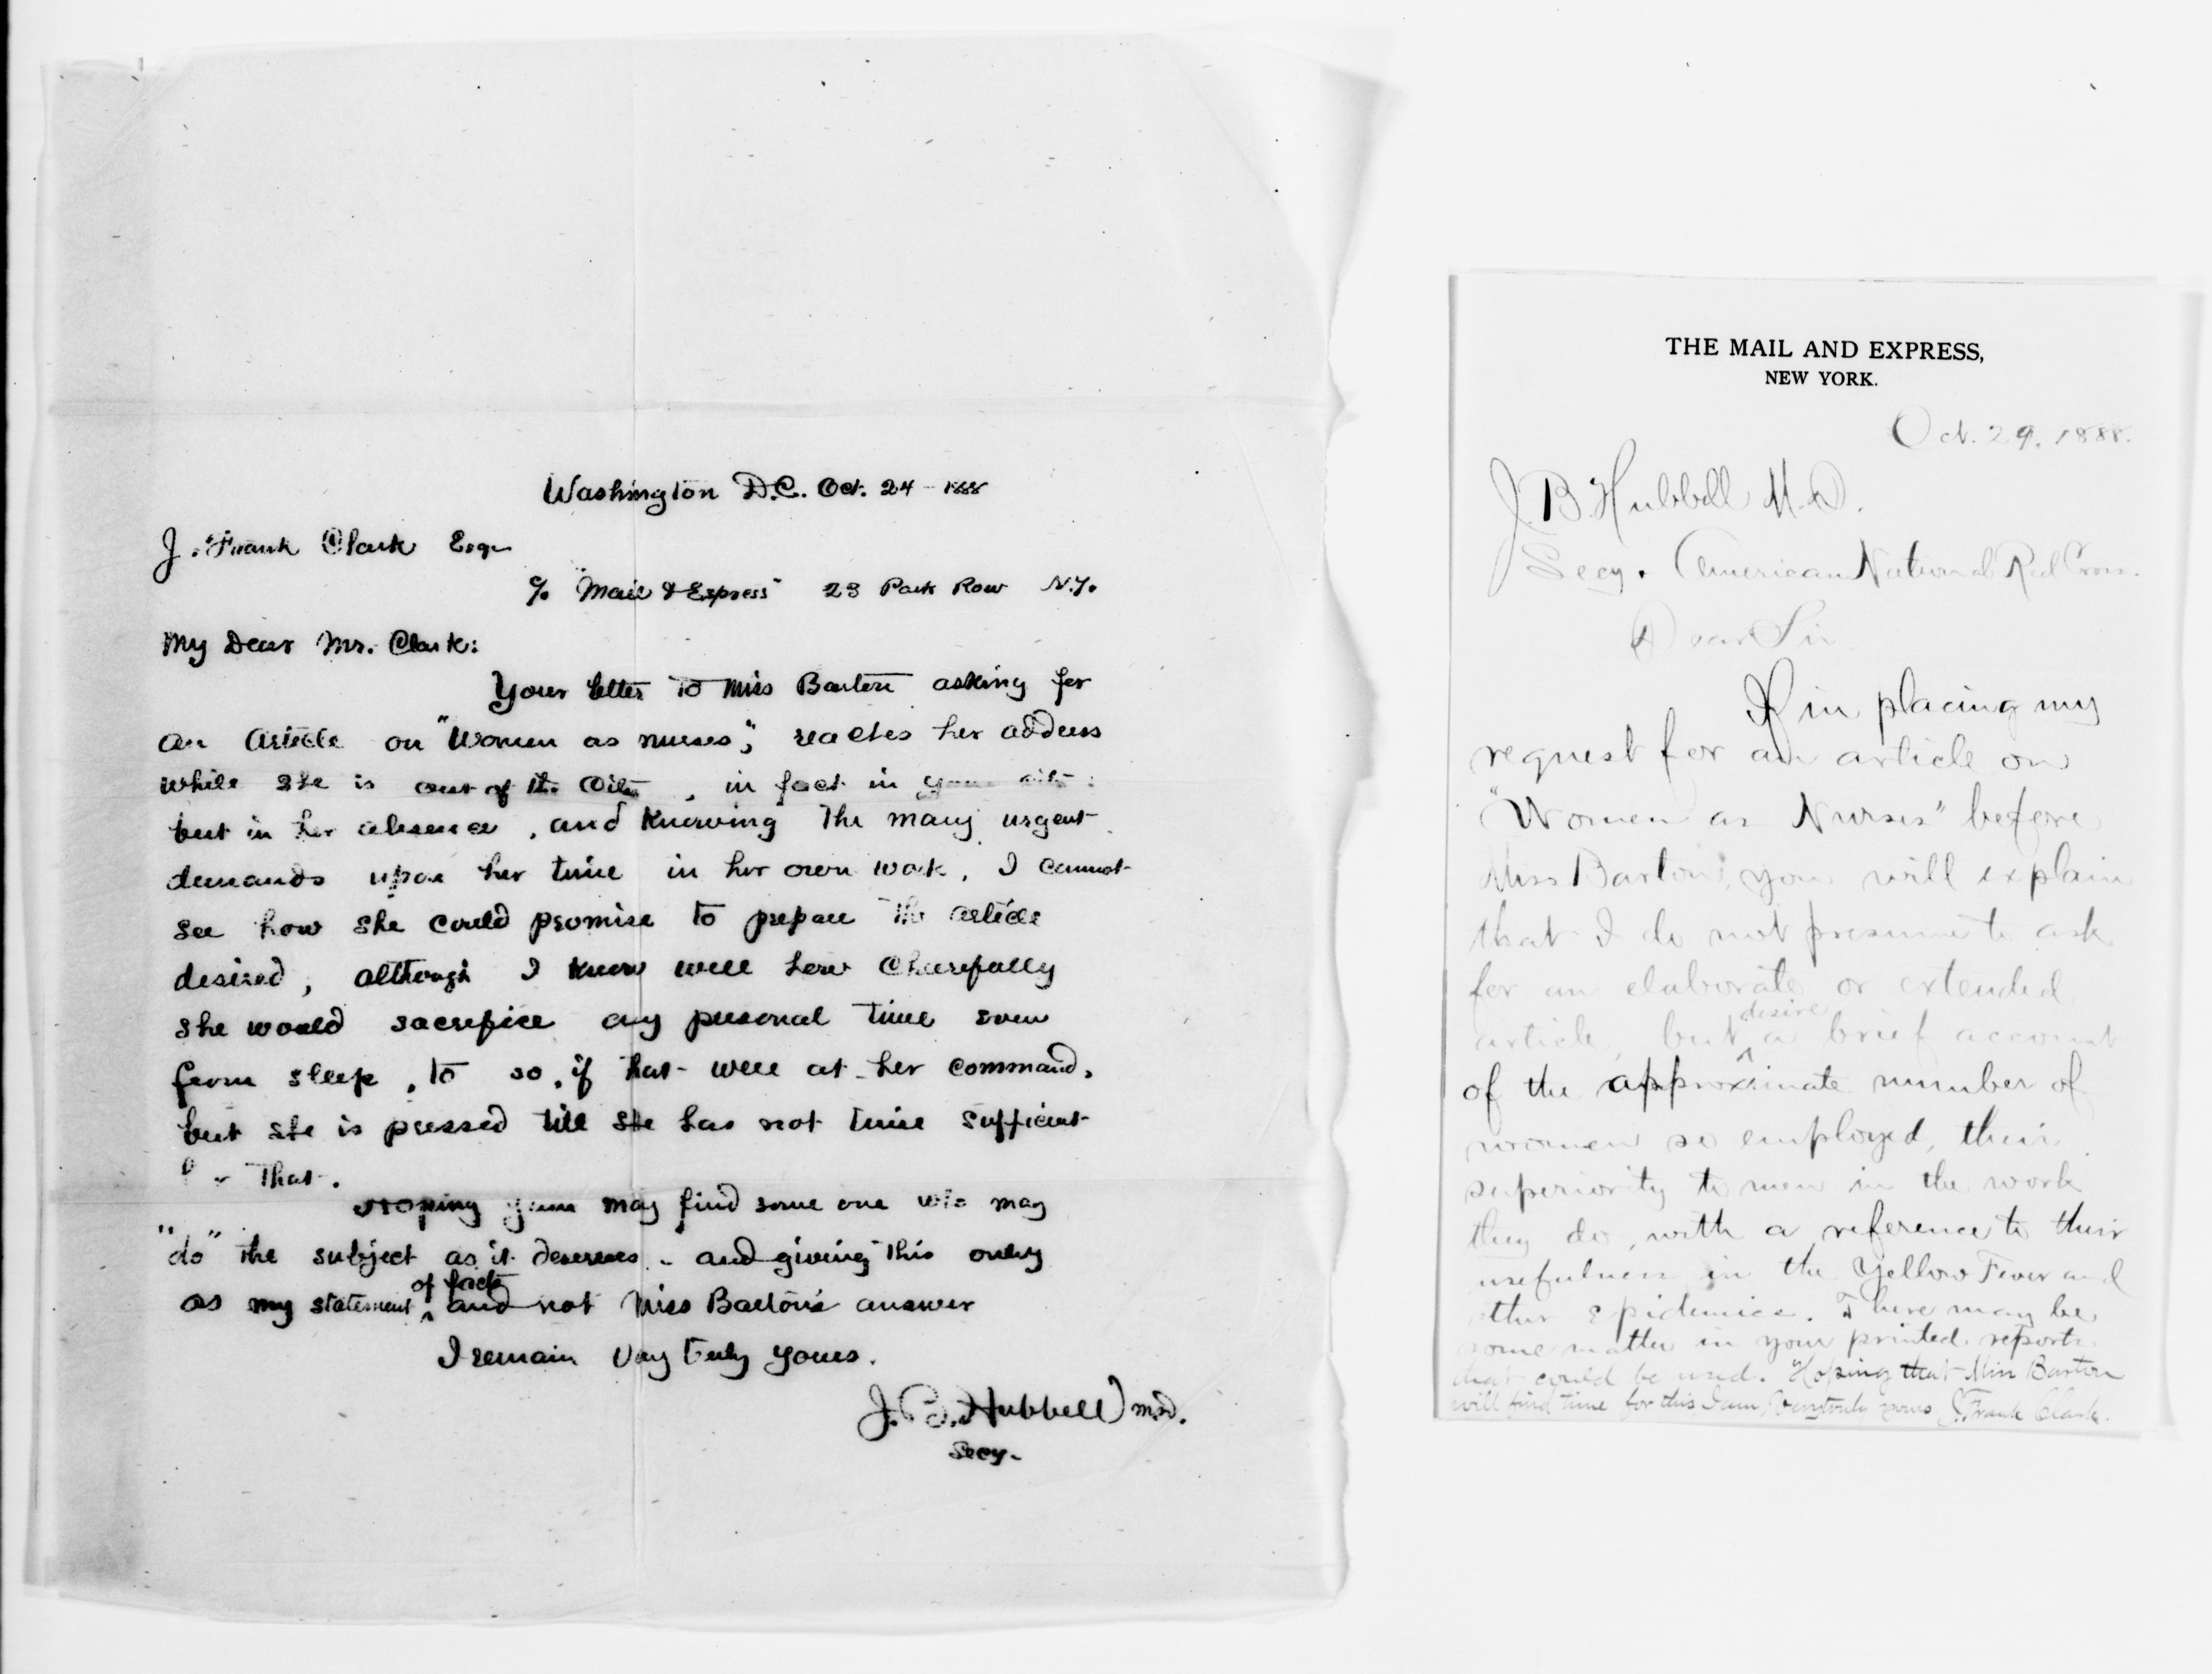 Washington D.C. Oct. 24 - 1888
J. Frank Clark Esq.
c/o "Mail & Express" 23 Park Row N.Y.
My Dear Mr. Clark:
Your letter to Miss Barton asking for
an article on "Women as nurses," reaches her address
while she is out of the City, in fact in your city:
but in her absence, and knowing the many urgent
demands upon her time in her own work, I cannot
see how she could promise to prepare the article
desired, although I know well how cheerfully
she would sacrifice any personal time even
from sleep, to so, if that were at her command,
but she is pressed till she has not time sufficient
for that.
Hoping you may find some one who may
"do" the subject as it deserves - and giving this only
as my statement of facts and not Miss Barton's answer
I remain Very truly yours.
J. B. Hubbell M.D.
Secy.
THE MAIL AND EXPRESS,
NEW YORK.
Oct. 29. 1888.
J. B. Hubbell M.D.
Secy. American National Red Cross.
Dear Sir
If in placing my
request for an article on
"Women as Nurses" before
Miss Barton, you will explain
that I do not presume to ask
for an elaborate or extended
article, but desire a brief account
of the approximate number of
women so employed, their
superiority to men in the work
they do, with a reference to their
usefulness in the Yellow Fever and
other epidemics. There may be
some matter in your printed reports
that could be used. Hoping that Miss Barton
will find time for this I am, Very truly yours J. Frank Clark.